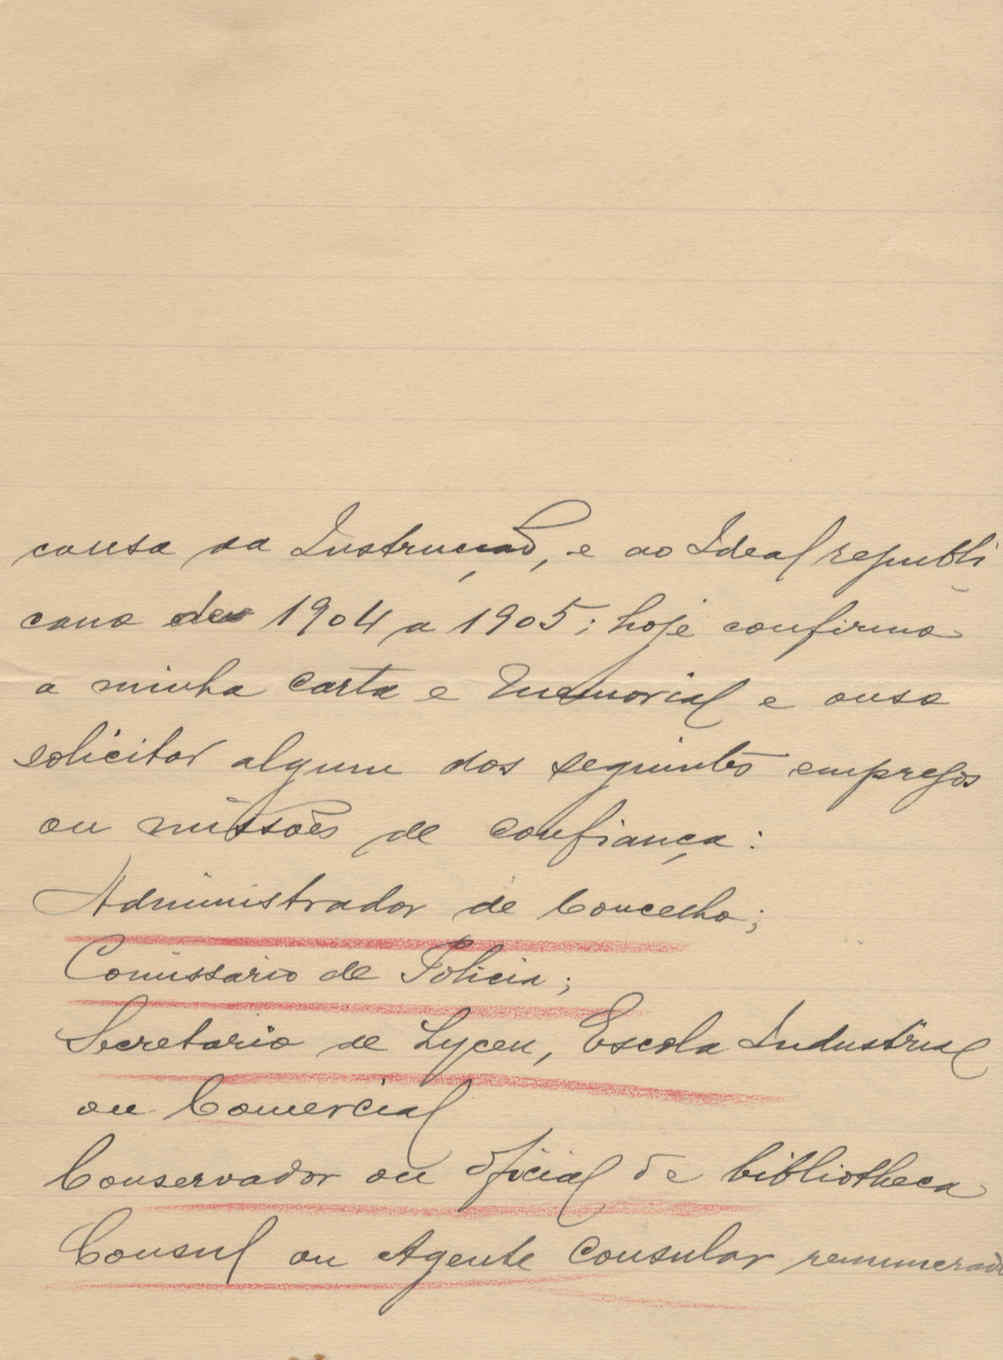 causa da Instrucção, e ao Ideal republi
cano de 1904 a 1905; hoje confirmo
a minha carta e Memorial e ouso
solicitar algum dos seguintes empregos
ou missões de confiança:
Administrador de Concelho;
Comissario de Policia;
Secretario de Lyceu, Escola Industrial
ou Comercial
Conservador ou oficial de bibliotheca
Consul ou Agente Consular remunerado